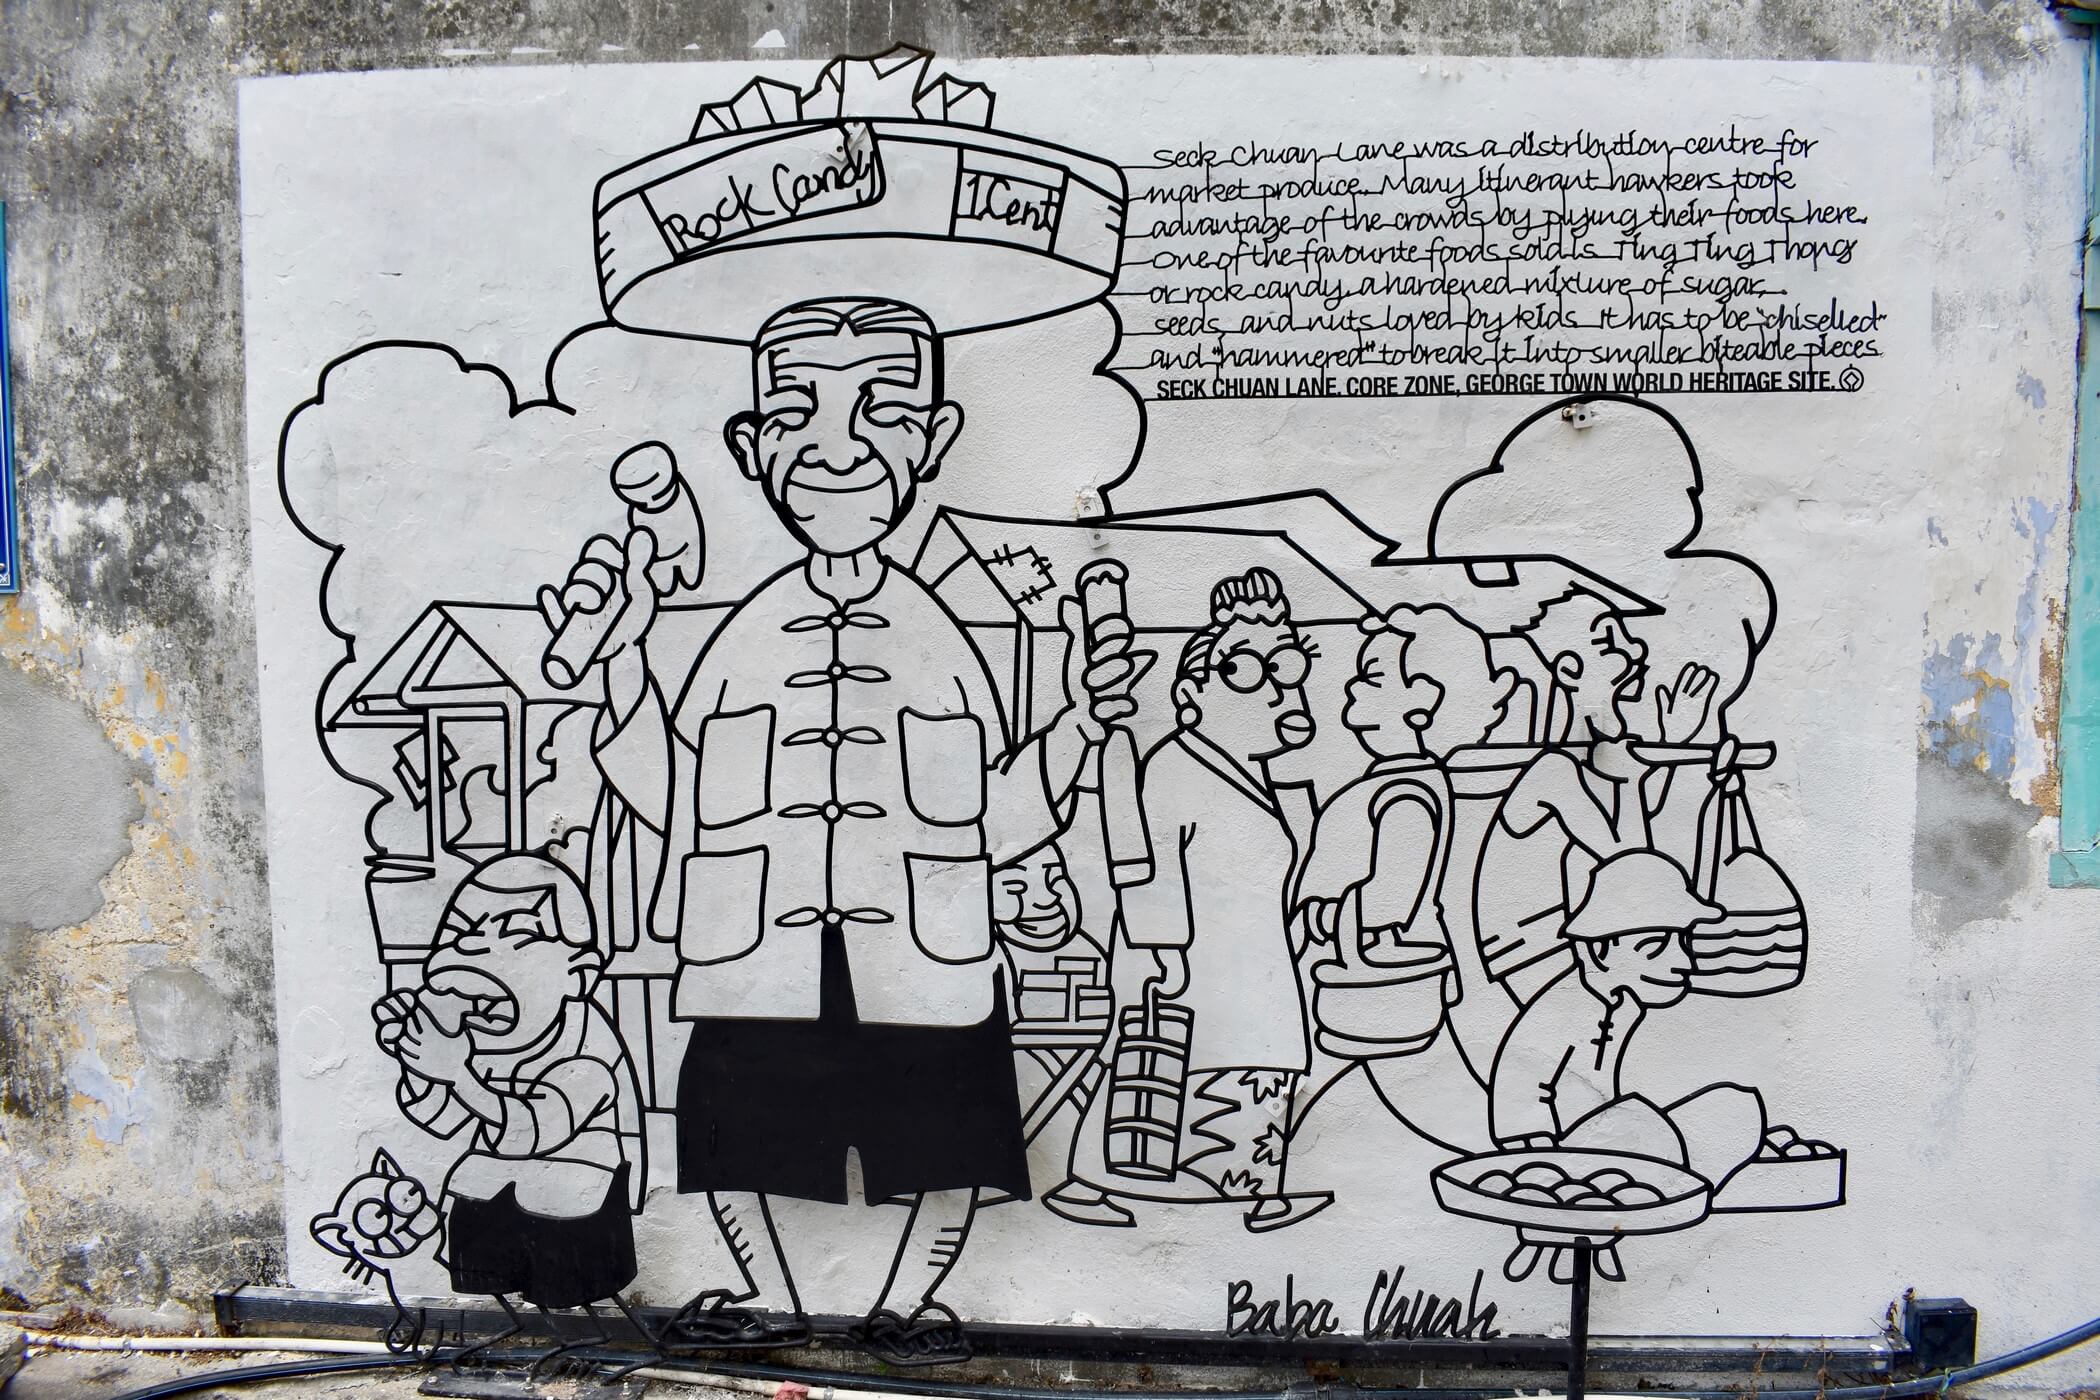 Rock Candy
1 Cent
Seck Chuan Lane was a distribution centre for
market produce. Many itinerant hawkers took
advantage of the crowds by plying their foods here.
One of the favourite foods sold is Ting Ting Thong
or rock candy, a hardened mixture of sugar,
seeds, and nuts loved by kids. It has to be "chiselled"
and "hammered" to break it into smaller biteable pieces
SECK CHUAN LANE, CORE ZONE, GEORGE TOWN WORLD HERITAGE SITE.
Baba Chuah